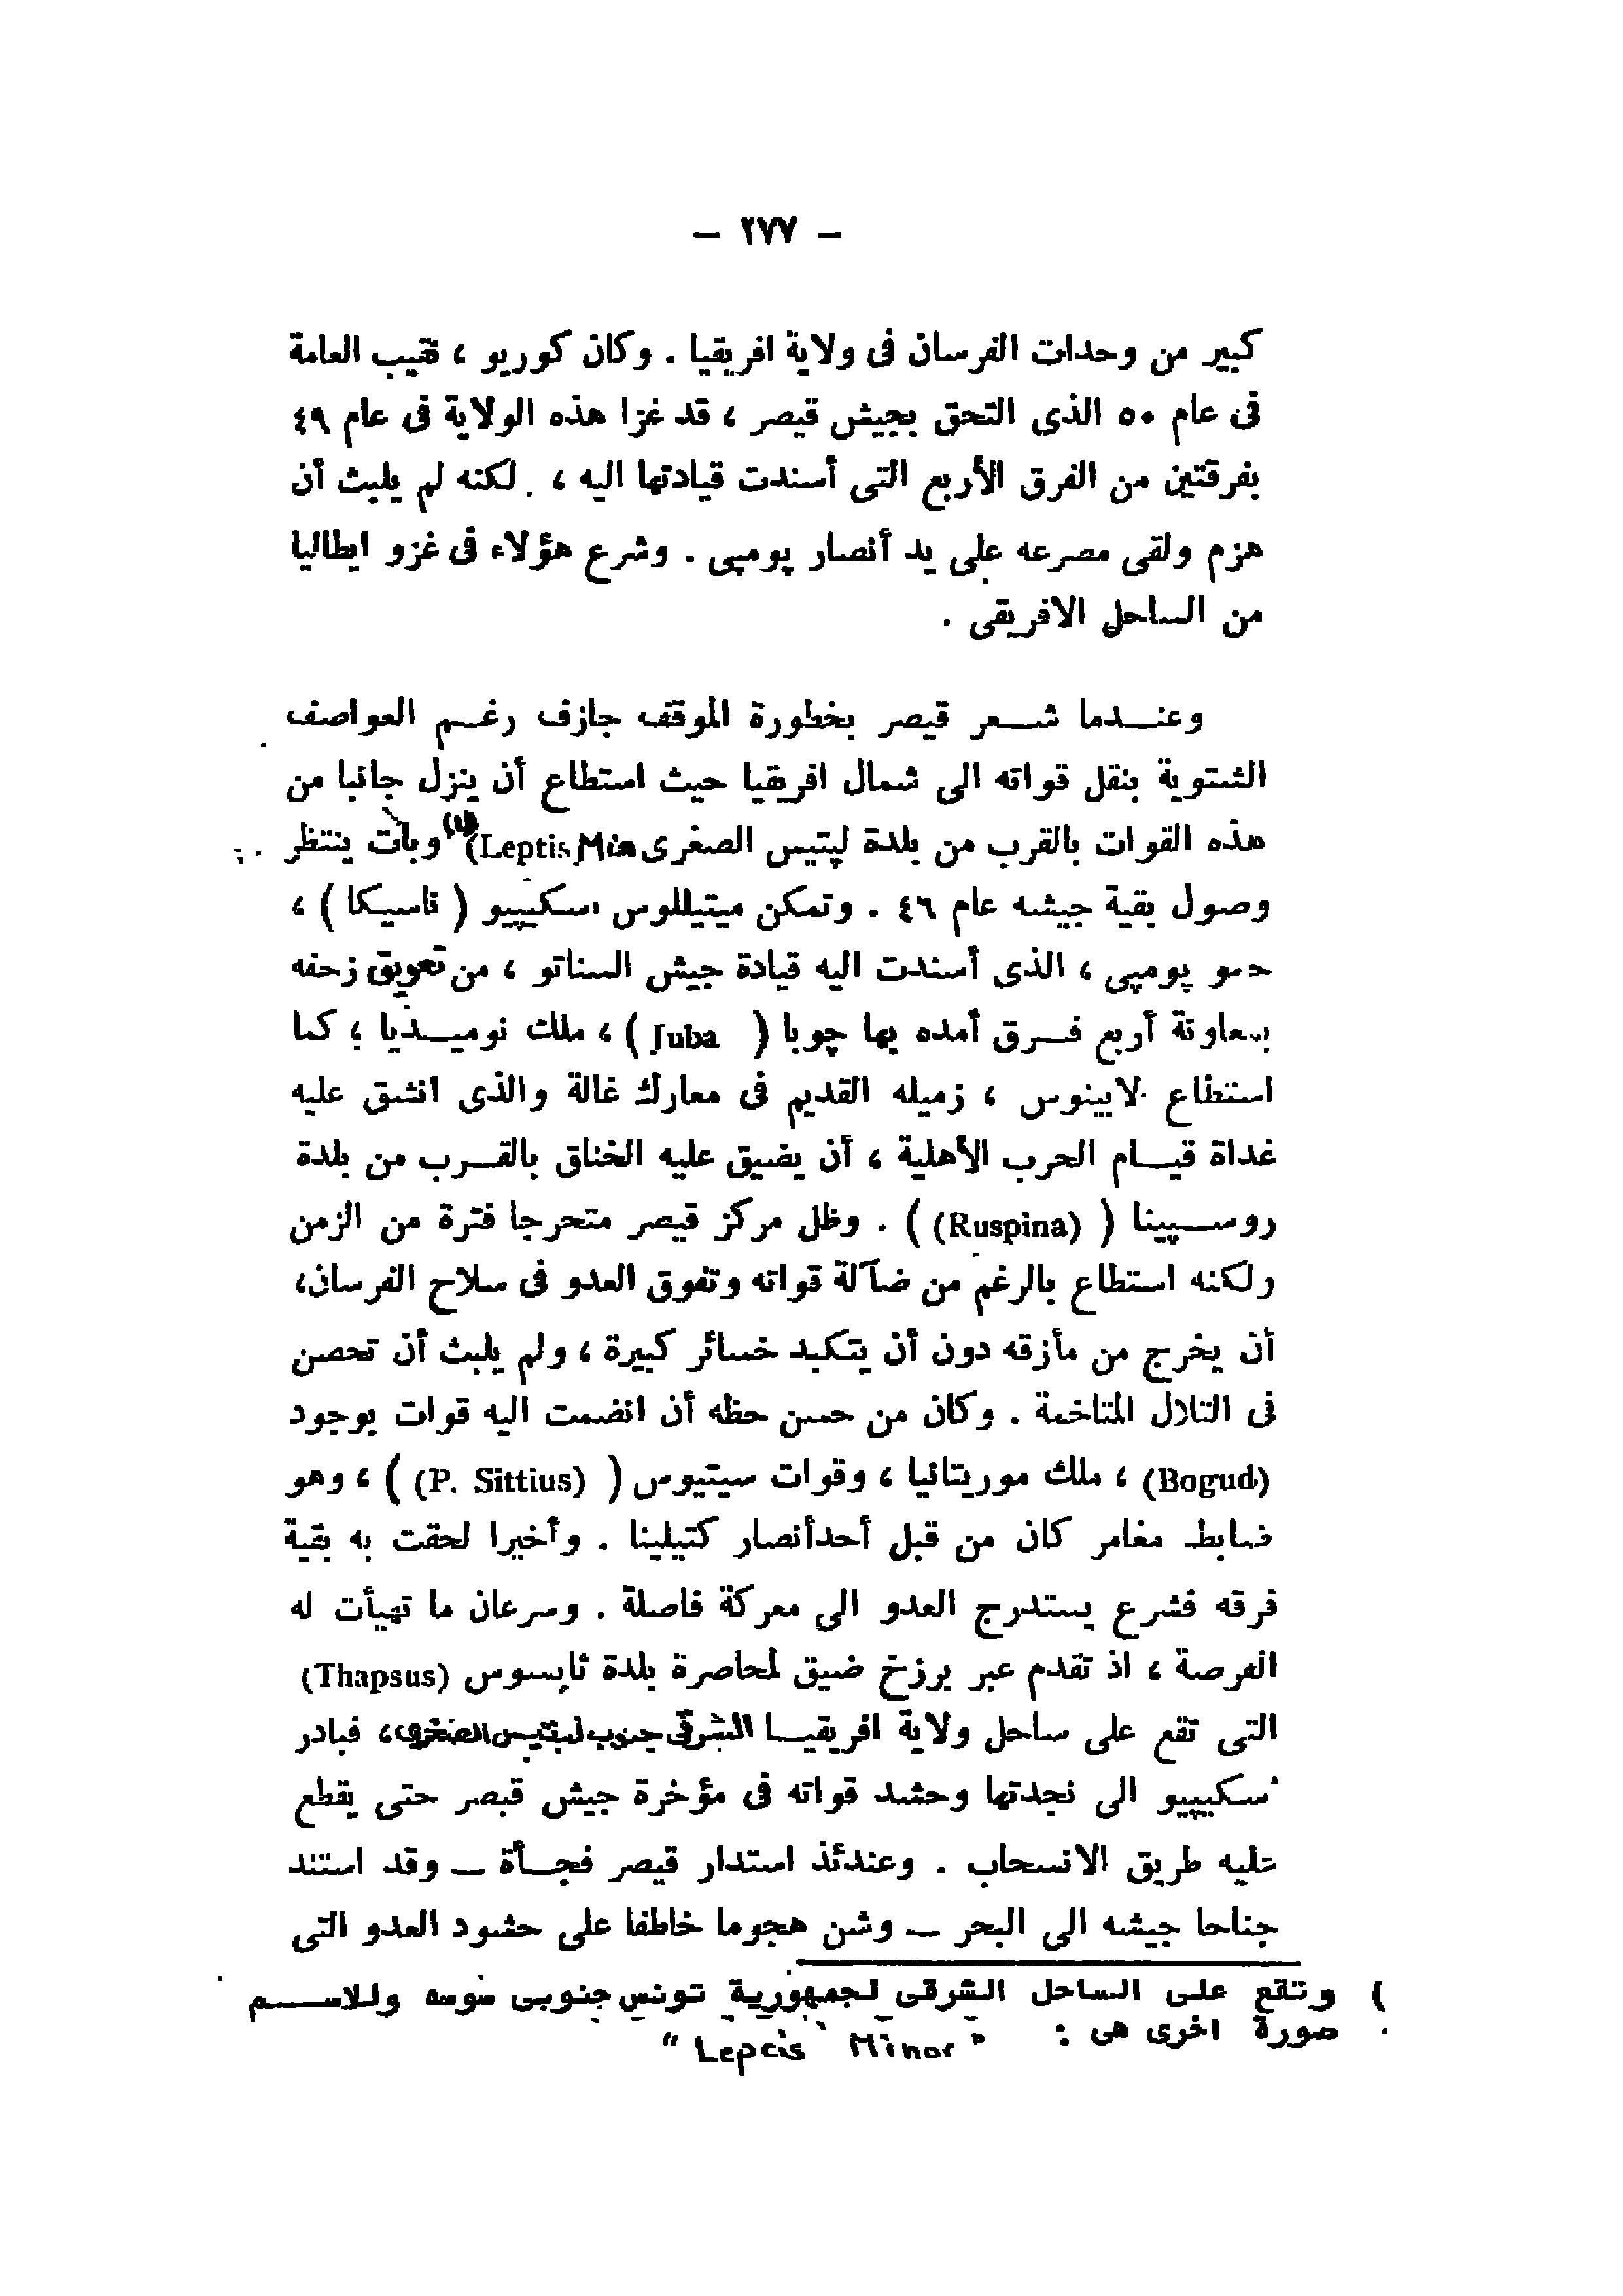 — ٢٧٧ —
كبير من وحدات الفرسان فى ولاية افريقيا . وكان كوريو ، نقيب العامة
فى عام ٥٠ الذى التحق بجيش قيصر ، قد غزا هذه الولاية فى عام ٤٩
بفرقتين من الفرق الأربع التى أسندت قيادتها اليه ، لكنه لم يلبث أن
هزم ولقى مصرعه على يد أنصار پومپى . وشرع هؤلاء فى غزو ايطاليا
من الساحل الافريقى .
وعنـدما شـعر قيصر بخطورة الموقف جازف رغـم العواصف
الشتوية بنقل قواته الى شمال افريقيا حيث استطاع أن ينزل جانبا من
هذه القوات بالقرب من بلدة لپتيس الصغرى (Leptis Min(١) وبات ينتظر
وصول بقية جيشه عام ٤٦ . وتمكن ميتيللوس اسكيپيو ( ناسيكا ) ،
حمو پومپى ، الذى أسندت اليه قيادة جيش السناتو ، من تعويق زحفه
بمعاونة أربع فـرق أمده بها چوبا ( Juba ) ، ملك نوميـديا ؛ كما
استطاع لابينوس ، زميله القديم فى معارك غالة والذى انشق عليه
غداة قيـام الحرب الأهلية ، أن يضيق عليه الخناق بالقـرب من بلدة
روسـپينا ( (Ruspina) ) . وظل مركز قيصر متحرجا فترة من الزمن
ولكنه استطاع بالرغم من ضآلة قواته وتفوق العدو فى سلاح الفرسان،
أن يخرج من مأزقه دون أن يتكبد خسائر كبيرة ، ولم يلبث أن تحصن
فى التلال المتاخمة . وكان من حسن حظه أن انضمت اليه قوات بوجود
(Bogud) ، ملك موريتانيا ، وقوات سيتيوس ( (P. Sittius) ) ، وهو
ضابط مغامر كان من قبل أحدأنصار كتيلينا . وأخيرا لحقت به بقية
فرقه فشرع يستدرج العدو الى معركة فاصلة . وسرعان ما تهيأت له
الفرصة ، اذ تقدم عبر برزخ ضيق لمحاصرة بلدة ثاپسوس (Thapsus)
التى تقع على ساحل ولاية افريقيـا الشرقى جنوب لبتيس الصغرى، فبادر
سكيپيو الى نجدتها وحشد قواته فى مؤخرة جيش قيصر حتى يقطع
عليه طريق الانسحاب . وعندئذ استدار قيصر فجـأة — وقد استند
جناحا جيشه الى البحر — وشن هجوما خاطفا على حشود العدو التى
) وتقع على الساحل الشرقى لجمهورية تونس جنوبى سوسه وللاسـم
صورة اخرى هى : "Lepcis Minor"